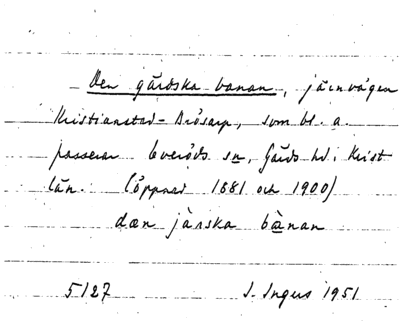 Den gärdska banan, järnvägen
Kristianstad-Brösarp, som bl. a.
passerar Everöds sn, Gärds hd i Krist
län. (öppnad 1881 och 1900)
dæn järska bànan
5127 I. Ingers 1951